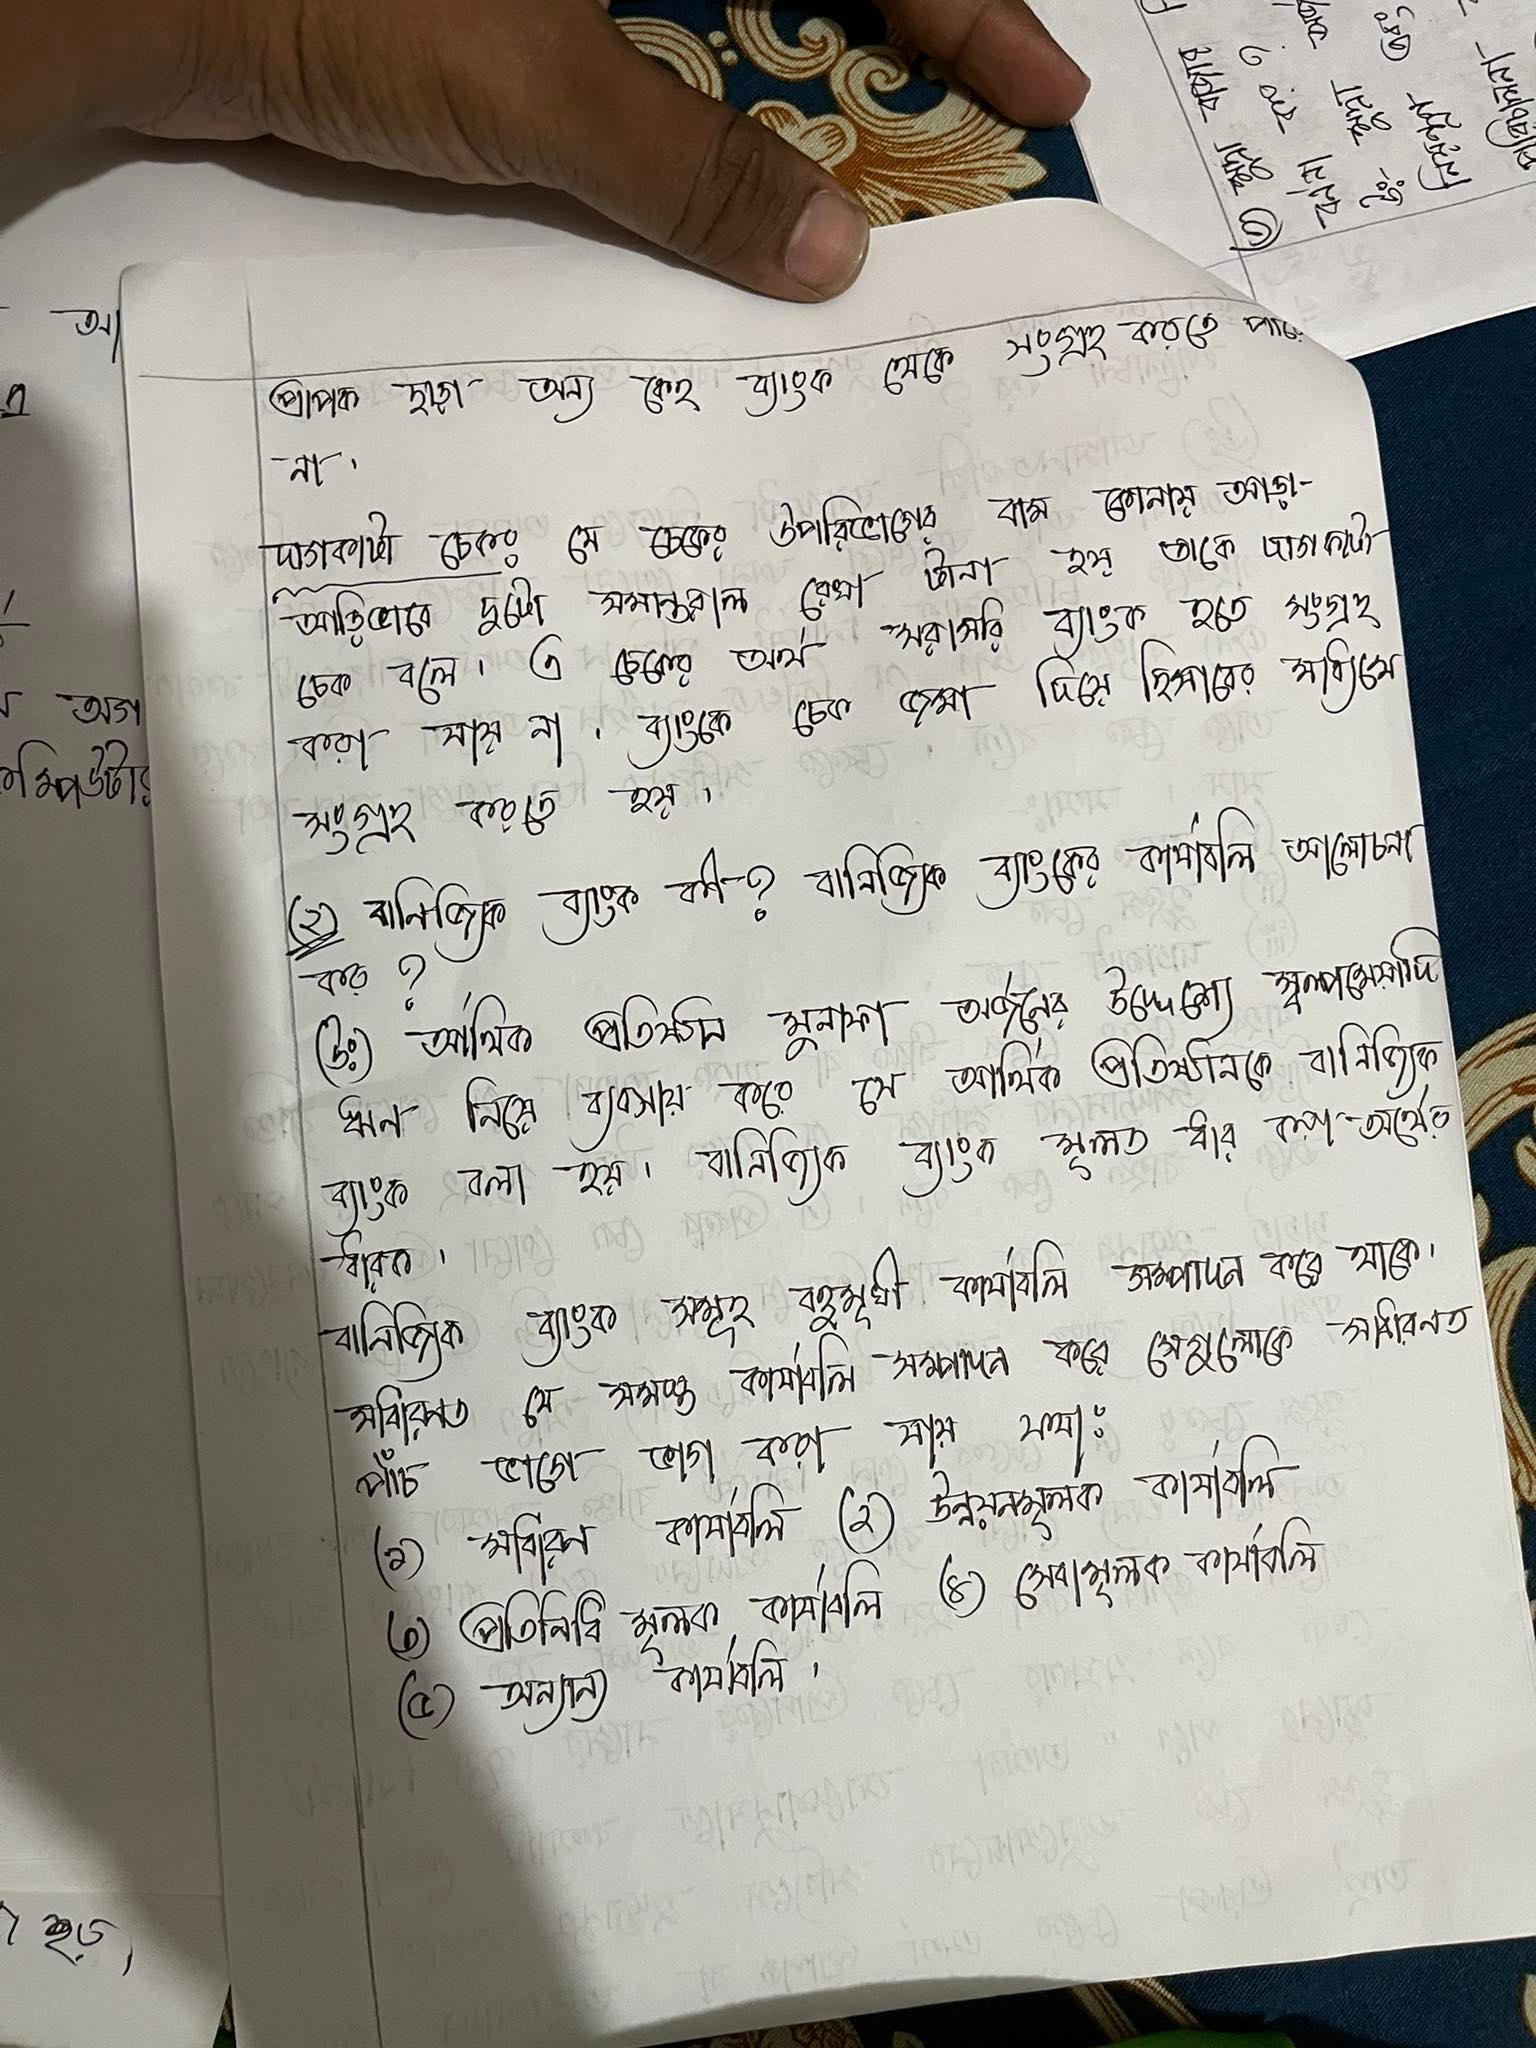 প্রাপক ছাড়া অন্য কেহ ব্যাংক থেকে সংগ্রহ করতে পারে
না।
দাগকাটা চেকঃ যে চেকের উপরিভাগের বাম কোনায় আড়া-
আড়িভাবে দুটো সমান্তরাল রেখা টানা হয় তাকে দাগকাটা
চেক বলে। এ চেকের অর্থ সরাসরি ব্যাংক হতে সংগ্রহ
করা যায় না। ব্যাংকে চেক জমা দিয়ে হিসাবের মাধ্যমে
সংগ্রহ করতে হয়।
(২) বানিজ্যিক ব্যাংক কী? বানিজ্যিক ব্যাংকের কার্যাবলি আলোচনা
কর?
(উঃ) আর্থিক প্রতিষ্ঠান মুনাফা অর্জনের উদ্দেশ্যে স্বল্পমেয়াদি
ঋন নিয়ে ব্যবসায় করে সে আর্থিক প্রতিষ্ঠানকে বানিজ্যিক
ব্যাংক বলা হয়। বানিজ্যিক ব্যাংক মূলত ধার করা অর্থের
ধারক।
বানিজ্যিক ব্যাংক সমূহ বহুমূখী কার্যাবলি সম্পাদন করে থাকে।
সাধারনত যে সমস্ত কার্যাবলি সম্পাদন করে সেগুলোকে সাধারনত
পাঁচ ভাগে ভাগ করা যায় যথাঃ
(১) সাধারন কার্যাবলি (২) উন্নয়নমূলক কার্যাবলি
(৩) প্রতিনিধি মূলক কার্যাবলি (৪) সেবামূলক কার্যাবলি
(৫) অন্যান্য কার্যাবলি।